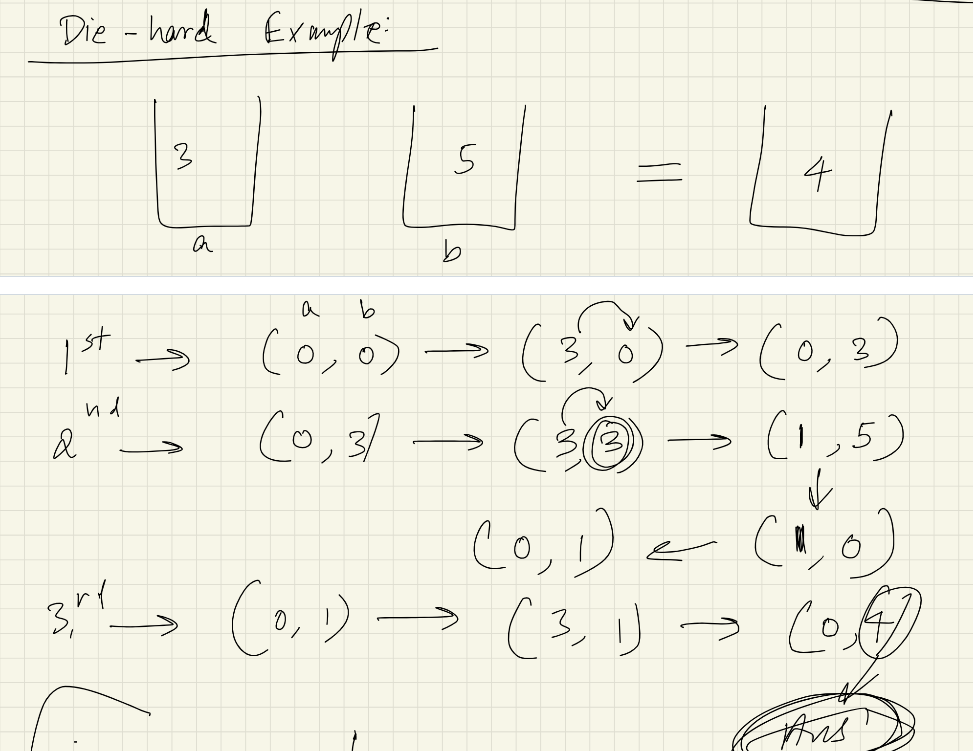 Die-hard Example:
3 5 = 4
a b
a b
1st → (0, 0) → (3, 0) → (0, 3)
2nd → (0, 3) → (3, 3) → (1, 5)
↓
(0, 1) ← (1, 0)
3rd → (0, 1) → (3, 1) → (0, 4)
Ans